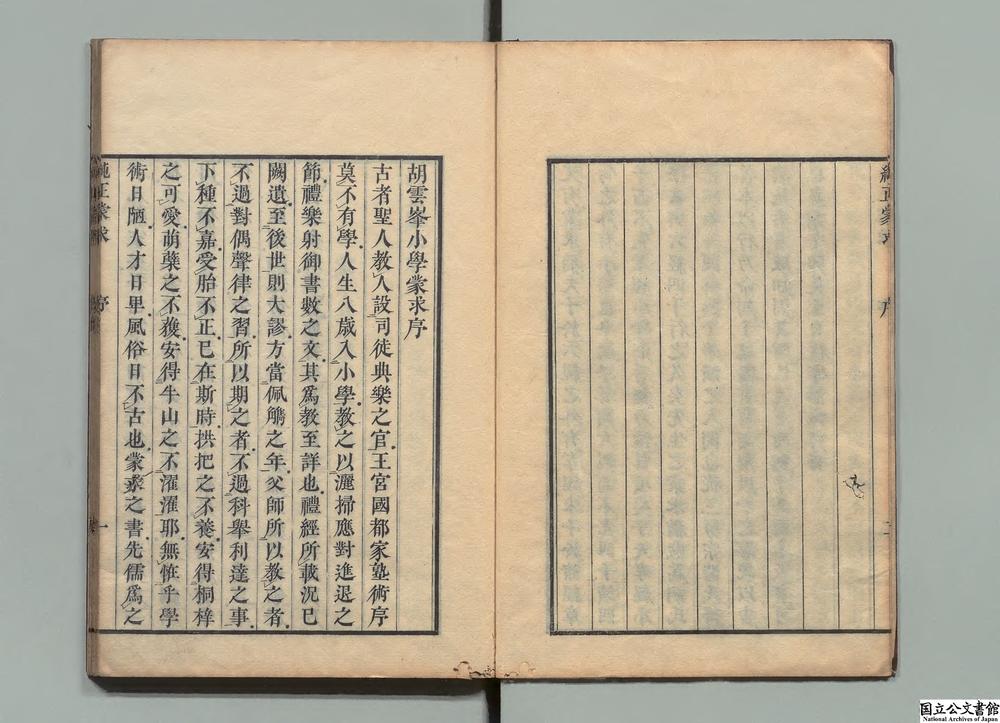 純正蒙求
序
二
胡雲峯小學蒙求序
古者聖人教人設司徒典樂之官王宮國都家塾術序
莫不有學人生八歲入小學教之以灑掃應對進退之
節禮樂射御書數之文其爲教至詳也禮經所載況已
闕遺至後世則大謬方當佩觿之年父師所以教之者
不過對偶聲律之習所以期之者不過科舉利達之事
下種不嘉受胎不正已在斯時拱把之不養安得桐梓
之可愛萌蘖之不蓡安得牛山之不濯濯耶無恠乎學
術日陋人才日卑風俗日不古也蒙求之書先儒爲之
純正蒙求
序
一
国立公文書館
National Archives of Japan